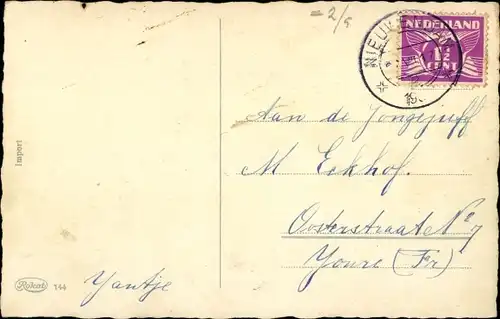 = 2/5
NEDERLAND
1½
CENT
Aan de Jongejuff
M Eekhof.
Oosterstraat No 7
Joure (Fr)
Import
Rokat 144
Jantje